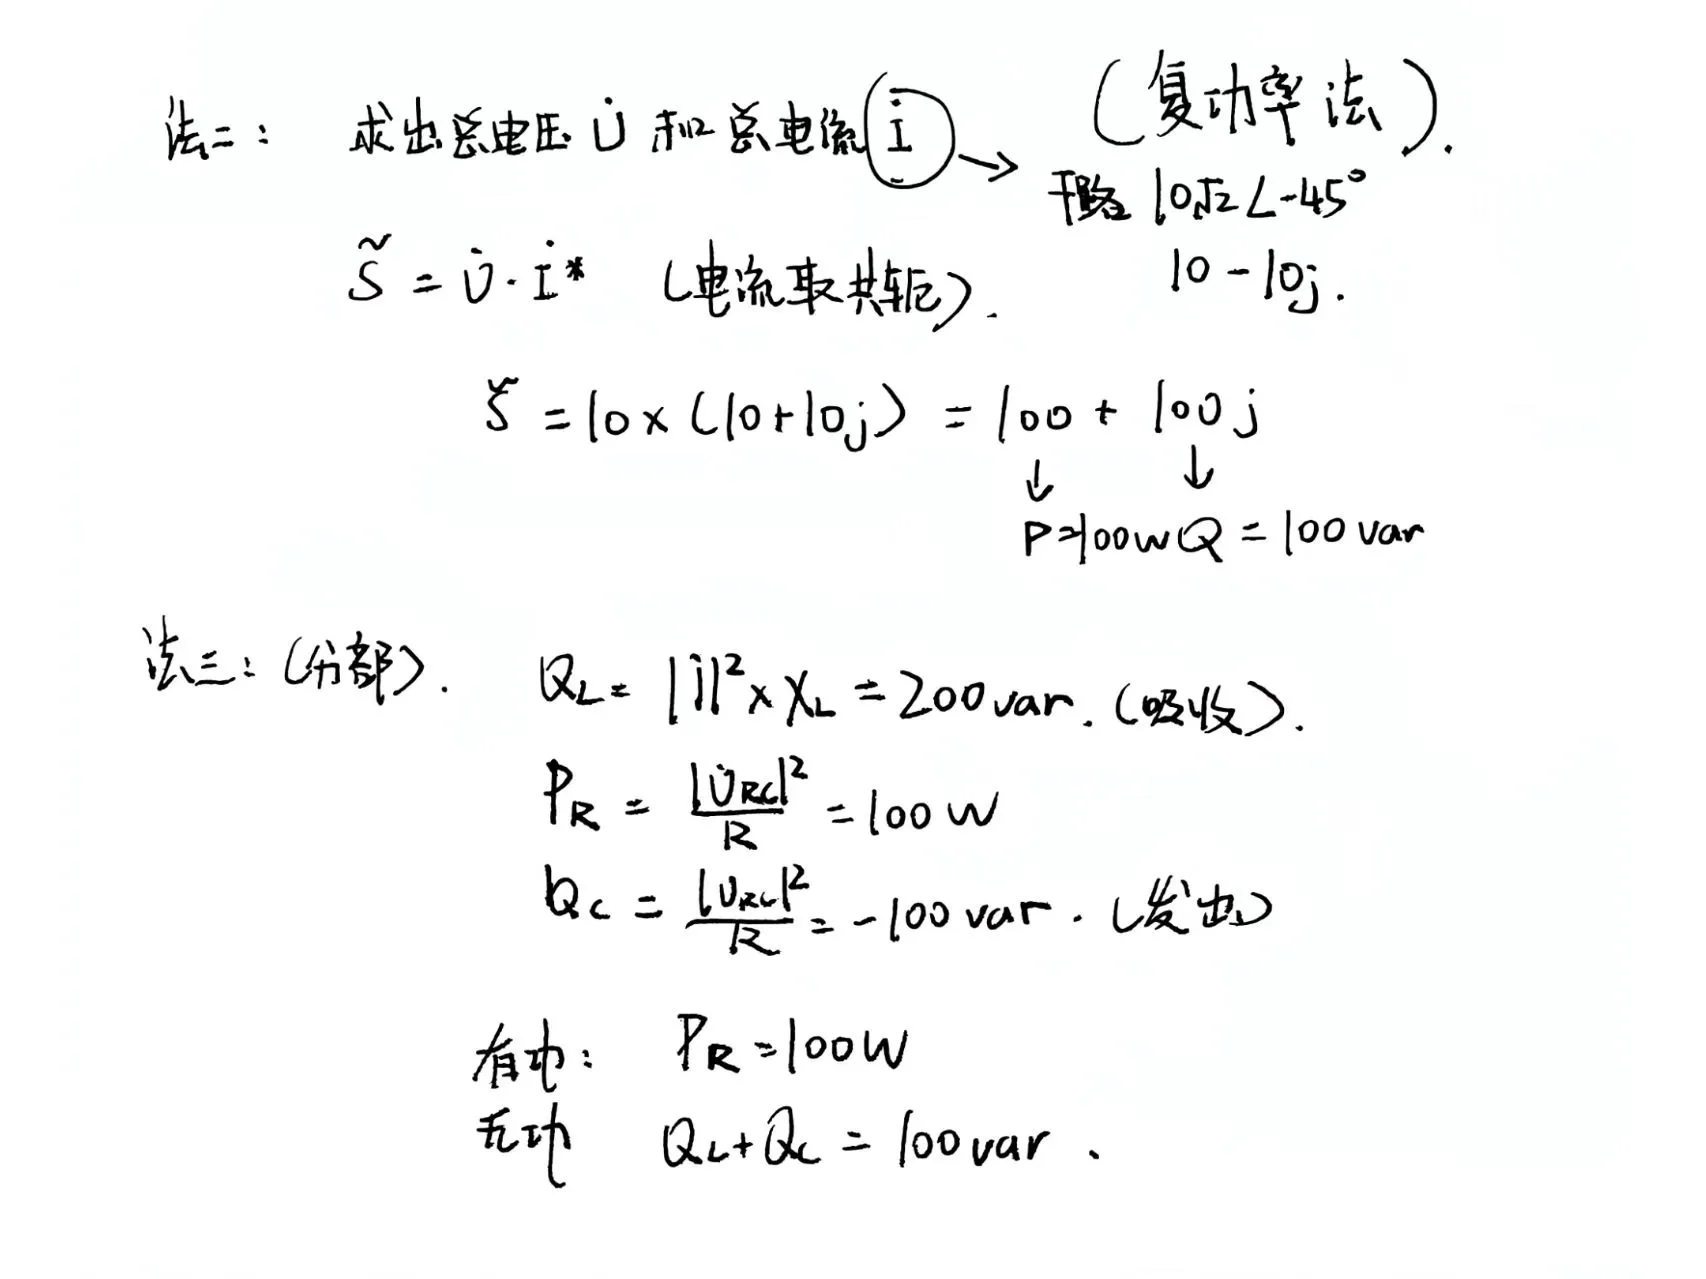 法二: 求出总电压 U̇ 和总电流 İ → (复功率法).
干路 10√2∠-45°
S̃ = U̇·İ* (电流取共轭).
10-10j.
S̃ = 10×(10+10j) = 100 + 100j
↓ ↓
P=100W Q=100var
法三: (分部). Q_L = |İ|²×X_L = 200var. (吸收).
P_R = |U̇_RC|²/R = 100W
Q_C = |U̇_RC|²/R = -100var. (发出)
有功: P_R = 100W
无功 Q_L+Q_C = 100var.